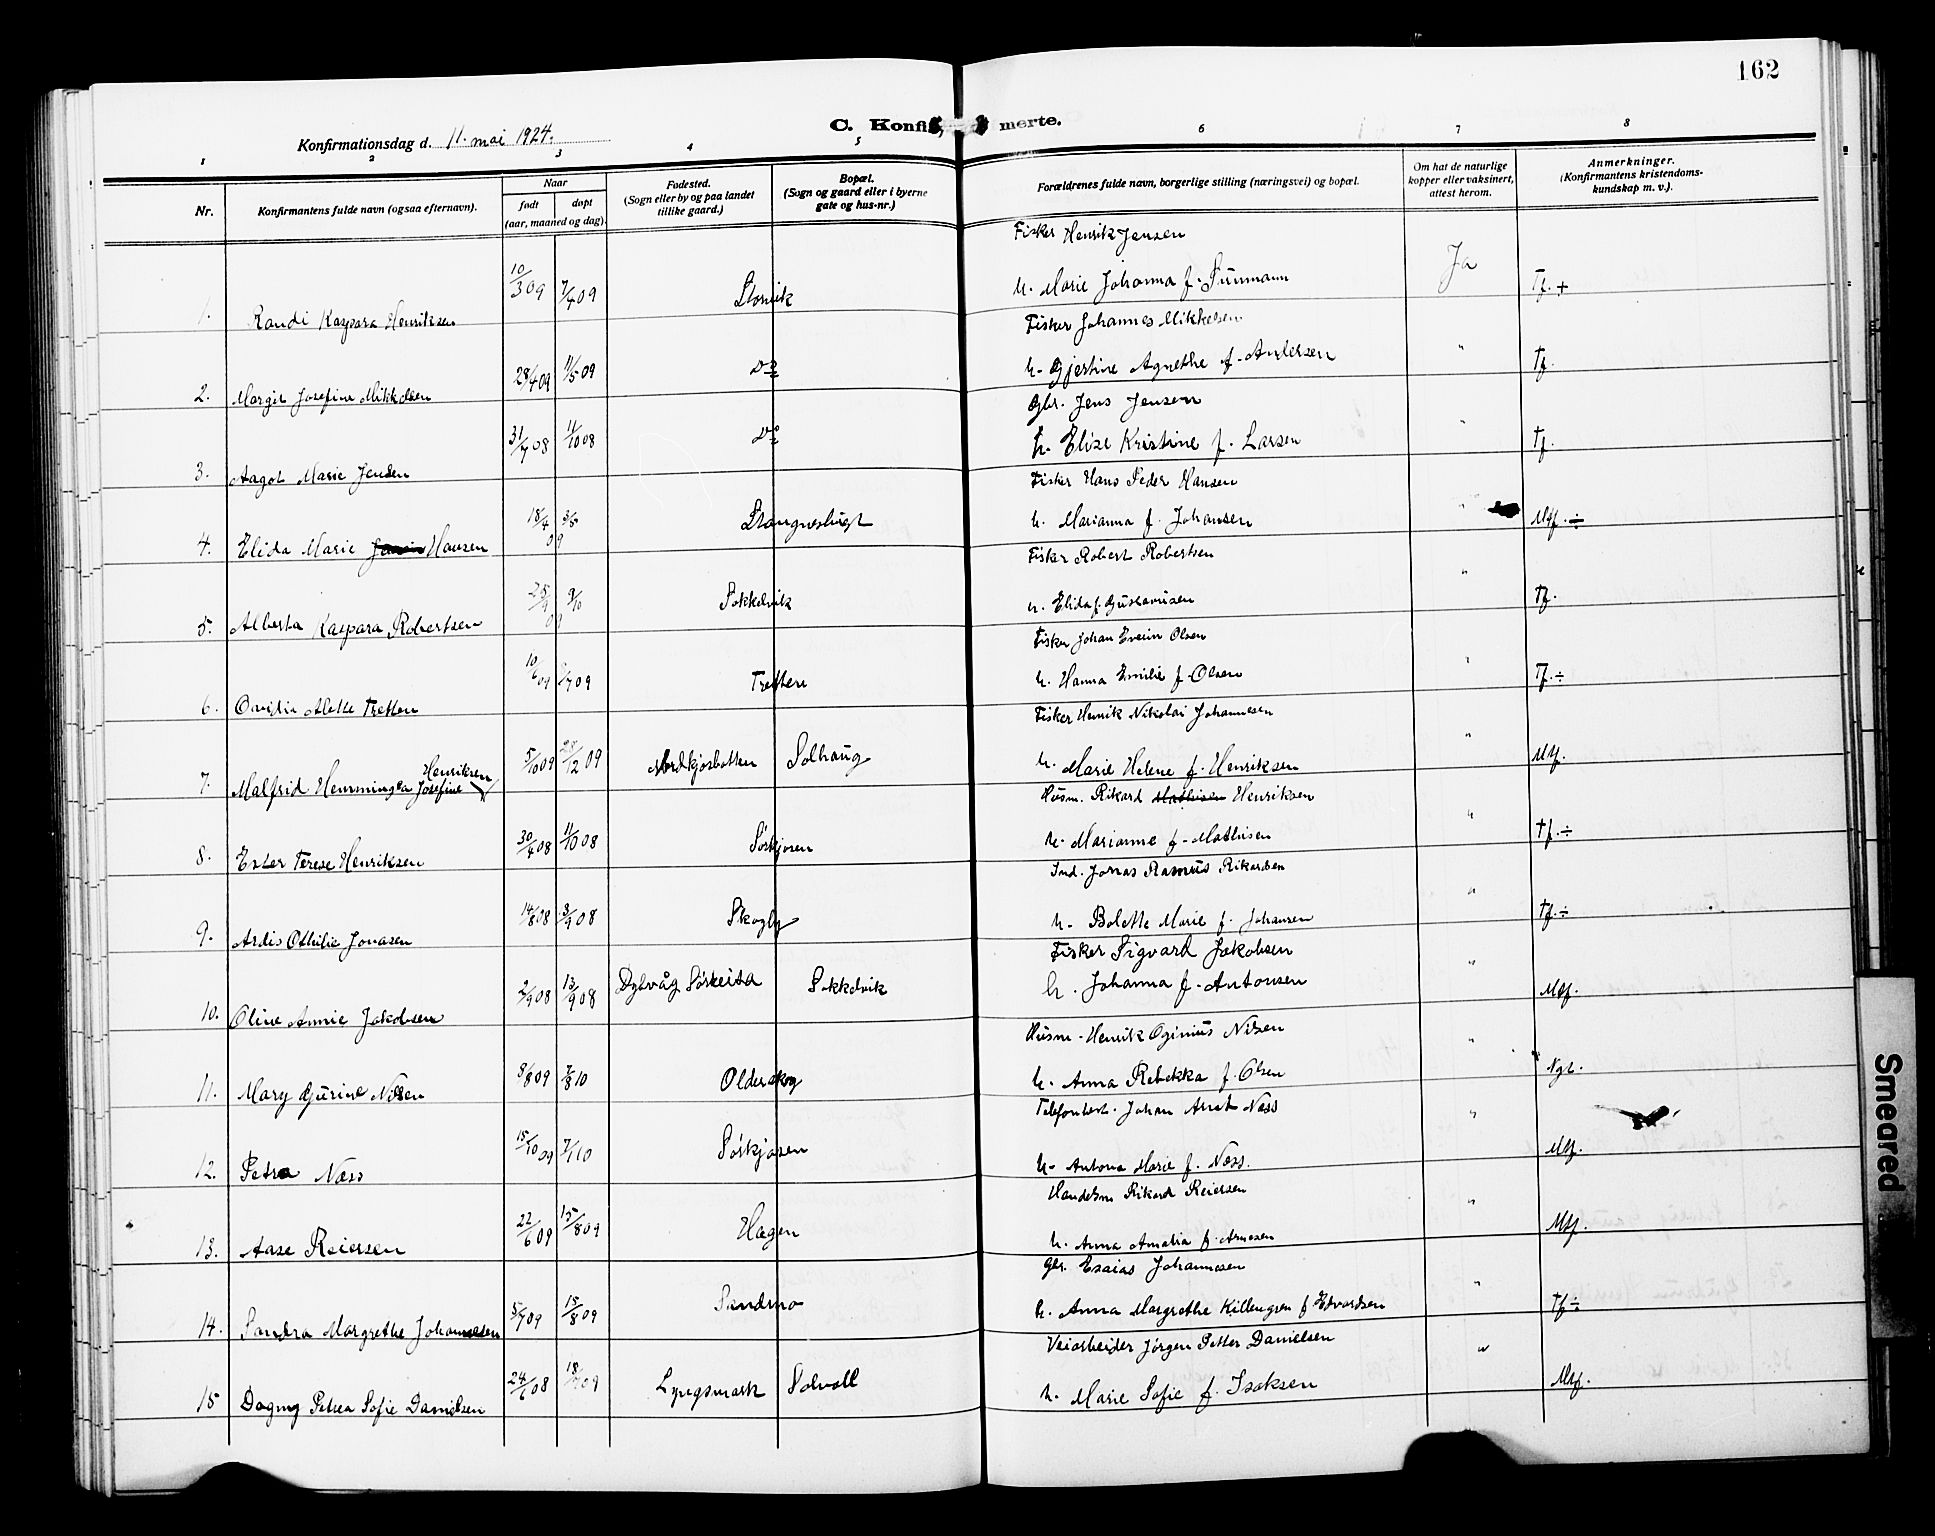 162
C. Konfi merte.
Konfirmationsdag d. 11. mai 1924.
1 2 3 4 5 6 7 8
Nr.
Konfirmantens fulde navn (ogsaa efternavn).
Naar
født
døpt
(aar, maaned og dag).
Fødested.
(Sogn eller by og paa landet
tillike gaard.)
Bopæl.
(Sogn og gaard eller i byerne
gate og hus-nr.)
Forældrenes fulde navn, borgerlige stilling (næringsvei) og bopæl.
Om hat de naturlige
kopper eller vaksinert,
attest herom.
Anmerkninger.
(Konfirmantens kristendoms-
kundskap m. v.).
Fisker Henrik Jensen
1. Randi Kaspara Henriksen 10/3 09 7/4 09 Storvik h. Marie Johanna f. Ja Tf. +
Fisker Johannes Mikkelsen
2. Margit Josefine Mikkelsen 28/4 09 11/5 09 Do h. Gjertine Agnethe f. Andersen " Tf.
Gbr. Jens Jensen
3. Aagot Marie Jensen 31/7 08 11/10 08 Do h. Elise Kristine f. Larsen " Tf.
Fisker Hans Peder Hansen
4. Elida Marie Hansen 18/4 09 3/5 Stangnesbugt h. Marianna f. Johansen " Mtf. ÷
Fisker Robert Robertsen
5. Alberta Kaspara Robertsen 25/9 09 9/10 Sokkelvik h. Elida f. Gustavusen " Tf.
Fisker Johan Olsen
6. Ovidia Alette Tretten 10/6 09 /7 09 Tretten h. Hanna Emilie f. Olsen " Tf. ÷
Fisker Henrik Nikolai Johannesen
7. Malfrid Hemmingea Josefine Henriksen 5/10 09 28/12 09 Nordkjosbotten Solhaug h. Marie Helene f. Henriksen " Mtf.
Husm. Rikard Mathisen Henriksen
8. Ester Terese Henriksen 30/4 08 11/10 08 Sørkjosen h. Marianne f. Mathisen " Tf. ÷
Ind. Jonas Rasmus Rikardsen
9. Ardis Othilie Jonasen 14/8 08 3/9 08 Skogly h. Bolette Marie f. Johansen " Tf. ÷
Fisker Sigvard Jakobsen
10. Oline Annie Jakobsen 2/9 08 13/9 08 Sokkelvik h. Johanna f. Antonsen " Mtf.
Husm. Henrik Oginius Nilsen
11. Mary Gjurine Nilsen 8/8 09 7/3 10 Olderskog h. Anna Rebekka f. Olsen " Ngt.
Telefonbest. Johan Arnt Næss
12. Petra Næss 15/10 09 7/1 10 Sørkjosen h. Antona Marie f. Næss. " Mtf.
Handelsm Rikard Reiersen
13. Aase Reiersen 22/6 09 15/8 09 Hagen h. Anna Amalia f. Arnesen " Mtf.
Gbr. Esaias Johannesen
14. Sandra Margrethe Johannesen 5/7 09 15/8 09 Sandmo h. Anna Margrethe Killengren f Edvardsen " Tf ÷
Veiarbeider Jørgen Petter Danielsen
15 Dagny Petrea Sofie Danielsen 24/6 08 18/ 09 Lyngsmark Solvoll h. Marie Sofie f. Isaksen " Mtf.
Smeared